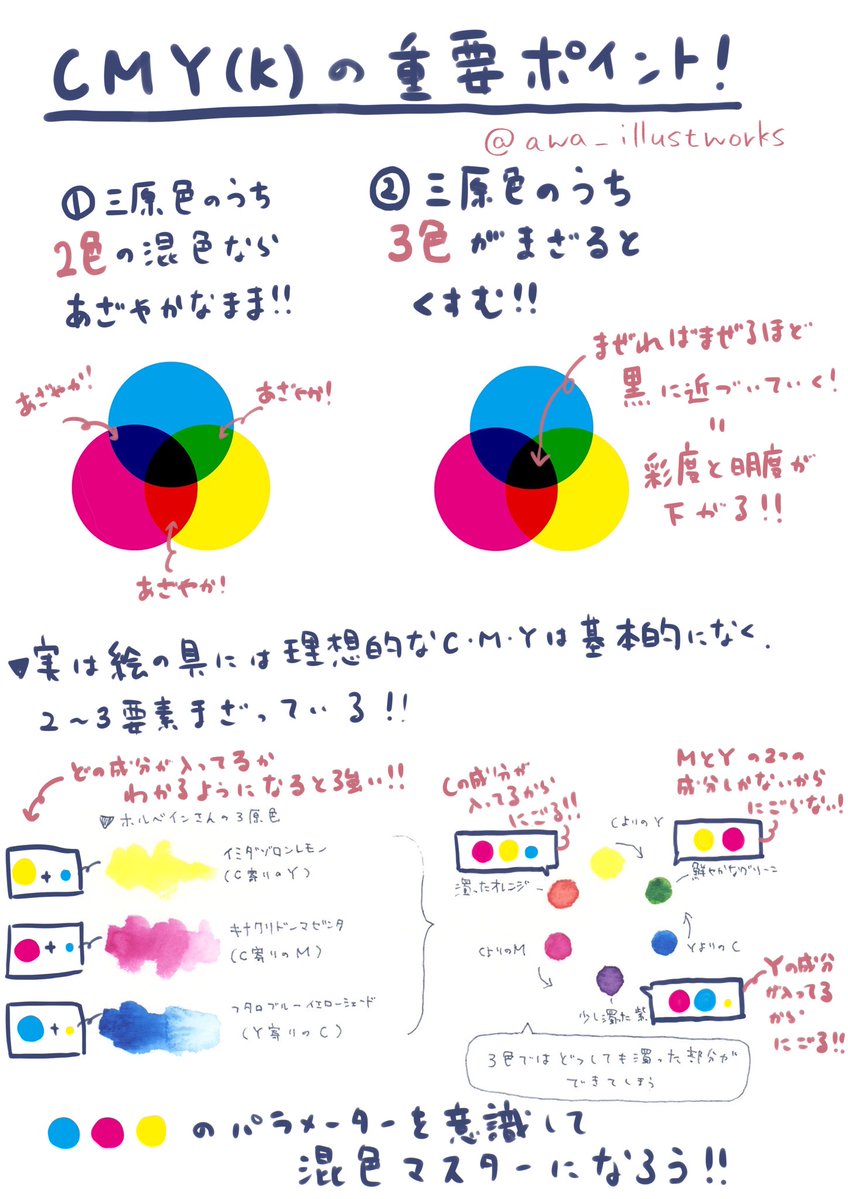 CMY(K)の重要ポイント!
@awa_illustworks
①三原色のうち
2色の混色なら
あざやかなまま!!
②三原色のうち
3色がまざると
くすむ!!
あざやか!
あざやか!
あざやか!
まぜればまぜるほど
黒に近づいていく!
=
彩度と明度が
下がる!!
▼実は絵の具には理想的なC・M・Yは基本的になく、
2~3要素まざっている!!
どの成分が入ってるか
わかるようになると強い!!
▼ホルベインさんの3原色
+
イミダゾロンレモン
(C寄りのY)
+
キナクリドンマゼンタ
(C寄りのM)
+
フタロブルーイエローシェード
(Y寄りのC)
Cの成分が
入ってるから
にごる!!
MとYの2つの
成分しかないから
にごらない!
CよりのY
濁ったオレンジ
鮮やかなグリーン
CよりのM
YよりのC
少し濁った紫
Yの成分
が入ってる
から
にごる!!
3色ではどうしても濁った部分が
できてしまう
のパラメーターを意識して
混色マスターになろう!!